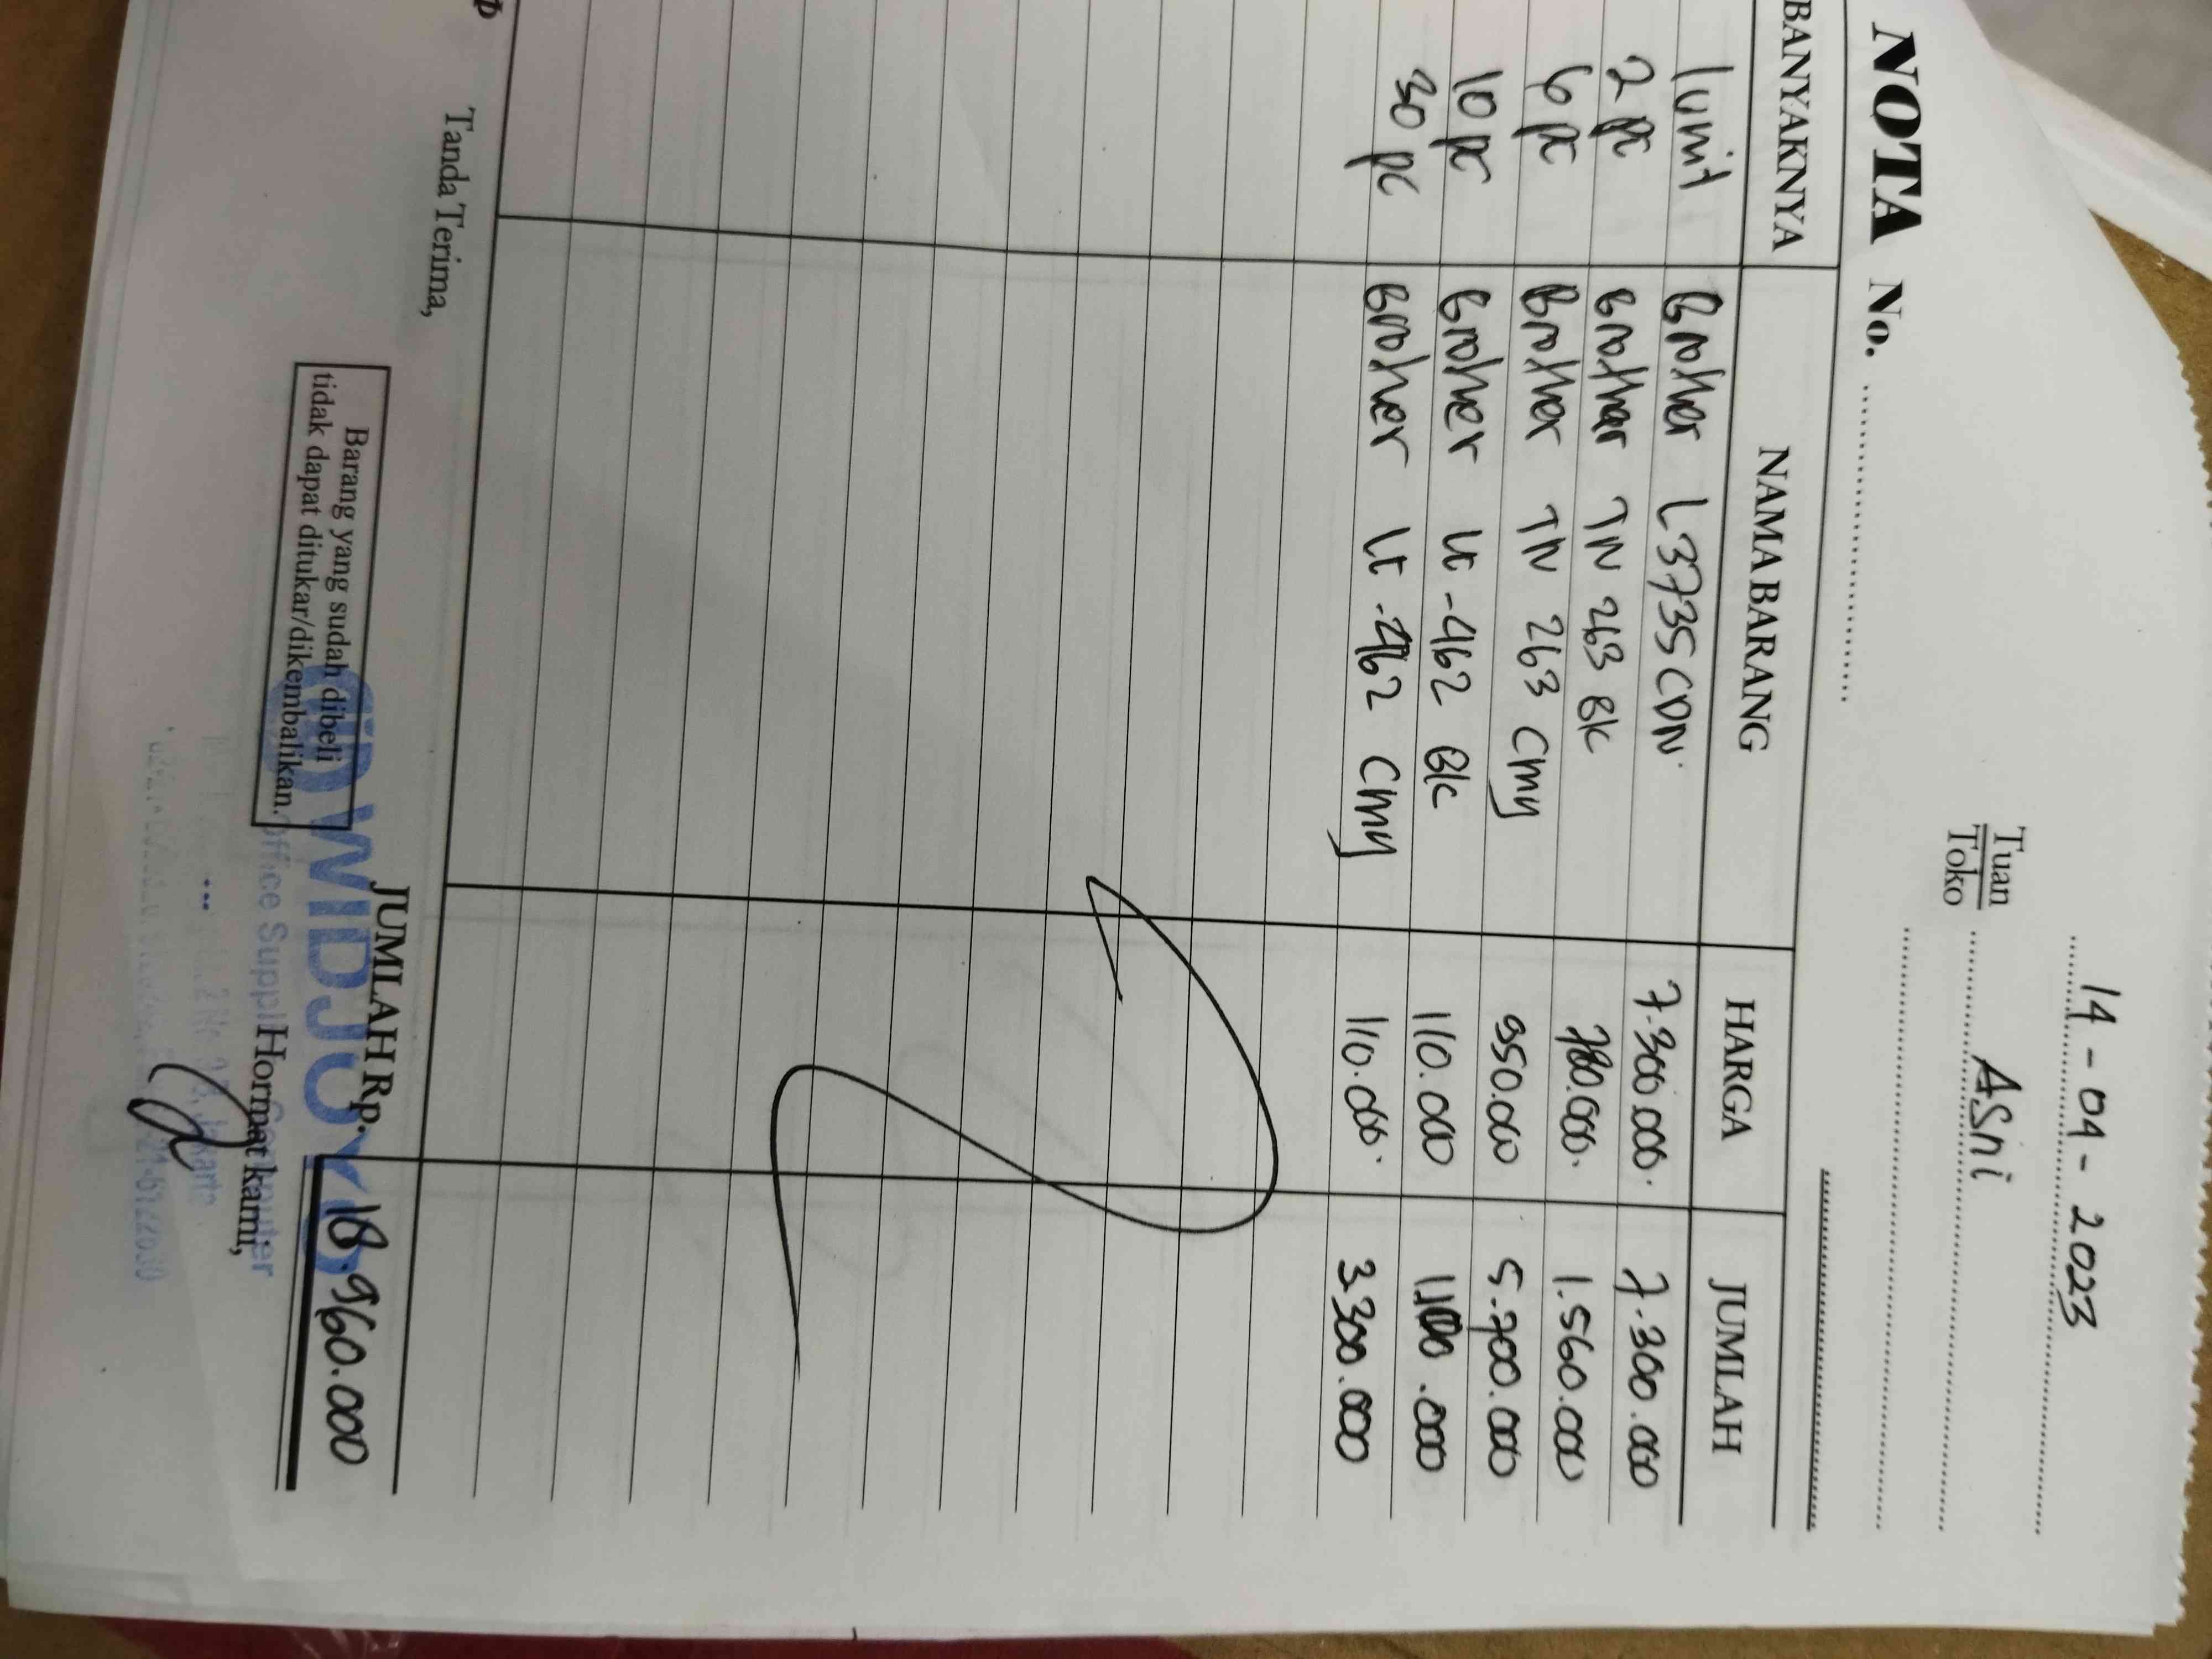 14 - 04 - 2023
Tuan
Toko Asni
NOTA No.
BANYAKNYA NAMA BARANG HARGA JUMLAH
1 unit Brother L3735CDN. 7.300.000. 7.300.000
2 pc Brother TN 263 BK 780.000. 1.560.000
6 pc Brother TN 263 CMY 950.000 5.700.000
10 pc Broher LC-462 BK 110.000 1.100.000
30 pc Broher LC-462 CMY 110.000. 3.300.000
JUMLAH Rp. 18.960.000
Tanda Terima,
Barang yang sudah dibeli
tidak dapat ditukar/dikembalikan.
Hormat kami,
WIDJOYO
Office Supplies Computer